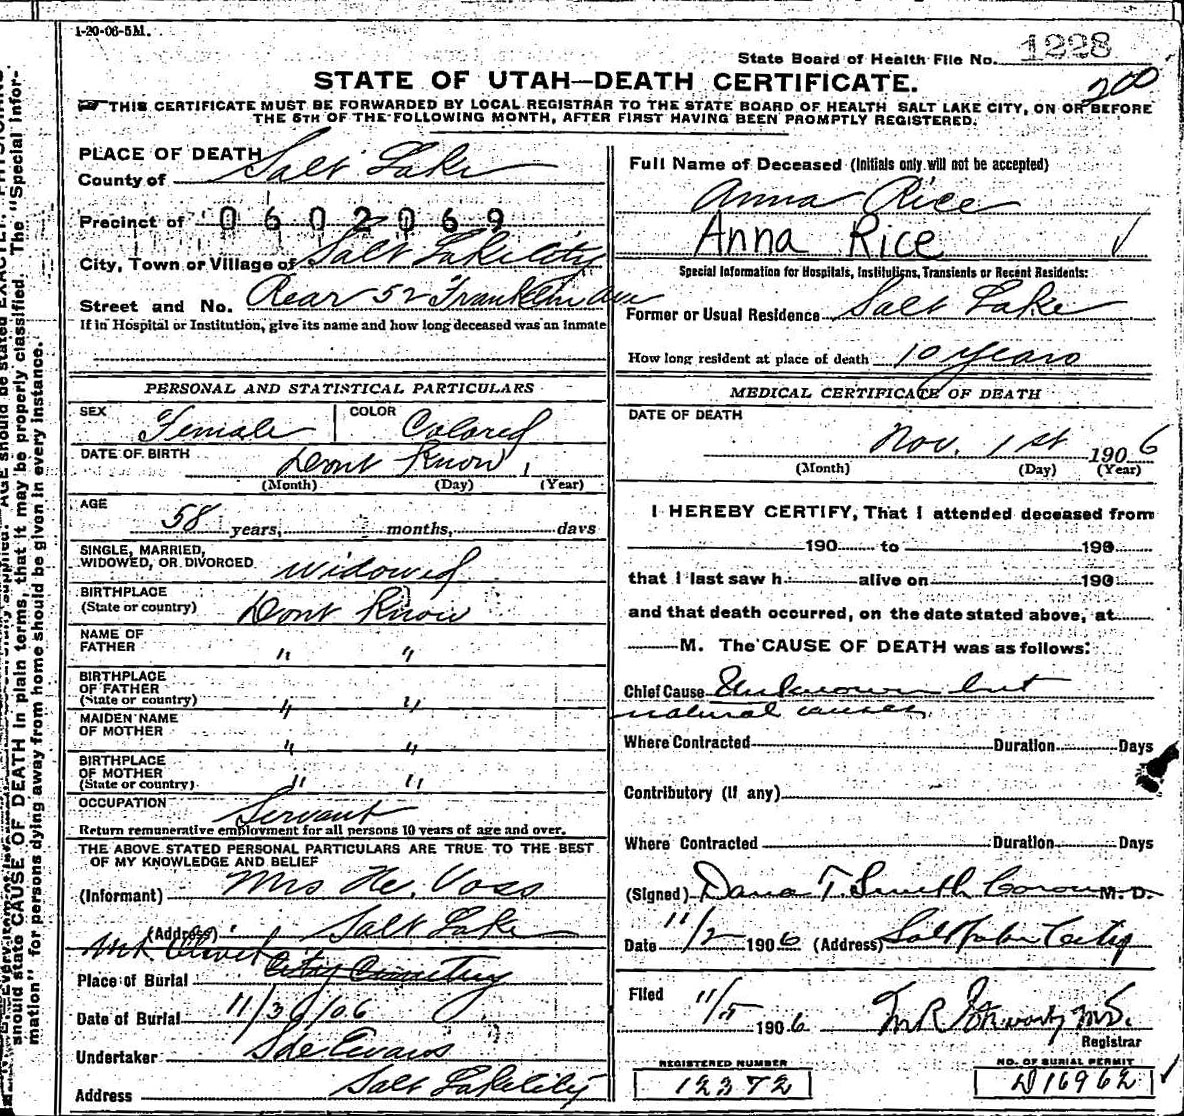 1-20-06-5M.
State Board of Health File No. 1228
200
STATE OF UTAH—DEATH CERTIFICATE.
THIS CERTIFICATE MUST BE FORWARDED BY LOCAL REGISTRAR TO THE STATE BOARD OF HEALTH SALT LAKE CITY, ON OR BEFORE
THE 5TH OF THE FOLLOWING MONTH, AFTER FIRST HAVING BEEN PROMPTLY REGISTERED.
PLACE OF DEATH
County of Salt Lake
Precinct of 0602069
City, Town or Village of Salt Lake City
Street and No. Rear 52 Franklin Ave
If in Hospital or Institution, give its name and how long deceased was an inmate
PERSONAL AND STATISTICAL PARTICULARS
SEX Female COLOR Colored
DATE OF BIRTH Dont Know
(Month) (Day) (Year)
AGE
58 years, months, days
SINGLE, MARRIED,
WIDOWED, OR DIVORCED Widowed
BIRTHPLACE
(State or country) Dont Know
NAME OF
FATHER " "
BIRTHPLACE
OF FATHER
(State or country) " "
MAIDEN NAME
OF MOTHER " "
BIRTHPLACE
OF MOTHER
(State or country) " "
OCCUPATION Servant
Return remunerative employment for all persons 10 years of age and over.
THE ABOVE STATED PERSONAL PARTICULARS ARE TRUE TO THE BEST
OF MY KNOWLEDGE AND BELIEF
(Informant) Mrs He. Voss
(Address) Salt Lake
Mt Olivet
Place of Burial City Cemetery
Date of Burial 11/3/06
Undertaker S de Evans
Address Salt Lake City
Full Name of Deceased (Initials only will not be accepted)
Anna Rice
Anna Rice
Special Information for Hospitals, Institutions, Transients or Recent Residents:
Former or Usual Residence Salt Lake
How long resident at place of death 10 years
MEDICAL CERTIFICATE OF DEATH
DATE OF DEATH
Nov. 1st 1906
(Month) (Day) (Year)
I HEREBY CERTIFY, That I attended deceased from
190 to 190
that I last saw h alive on 190
and that death occurred, on the date stated above, at
M. The CAUSE OF DEATH was as follows:
Chief Cause Unknown but
natural causes
Where Contracted Duration Days
Contributory (if any)
Where Contracted Duration Days
(Signed) Dana T. Smith Coroner M. D.
Date 11/2 1906 (Address) Salt Lake City
Filed 11/5 1906
Registrar
REGISTERED NUMBER
12372
NO. OF BURIAL PERMIT
D16962
should state CAUSE OF DEATH in plain terms, that it may be properly classified. The "Special Infor-
mation" for persons dying away from home should be given in every instance.